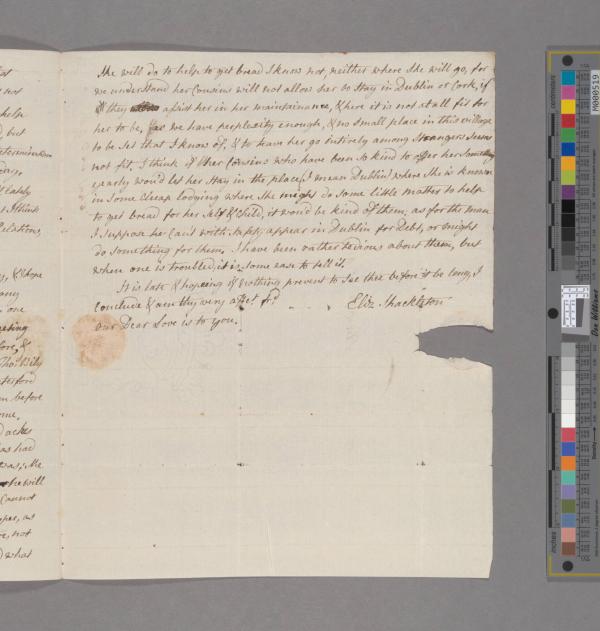 She will do to help to get bread I know not, neither where She will go, for
we understand her Cousins will not allow her to Stay in Dublin or Cork, if
they assist her in her maintainance, & here it is not at all fit for
her to be, for we have perplexity enough, & no small place in this village
to be Set that I know of, & to have her go intirely among Strangers Seems
not fit. I think if her Cousins who have been So kind to offer her Something
yearly wou'd let her Stay in the place, I mean Dublin where She is known
in Some Cheap lodging where She might do Some little matter to help
to get bread for her Self & Child, it wou'd be kind of them, as for the man
I Suppose he can't with Safety appear in Dublin for Debt, or might
do Something for them, I have been rather tedious about them, but
when one is troubled, it is Some ease to tell it.
It is late & hopeing if nothing prevent to See thee before it be long, I
conclude & am thy very affect. frd
Eliz. Shackleton
our Dear Love is to you.
not
help
but
determination
Lately
I think
Relations,
& hope
any
one
meeting
fore, &
Tho:
before
ome,
as had
was, She
he will
Cannot
as
not
what
centimeters
inches
M000519
Don Williams